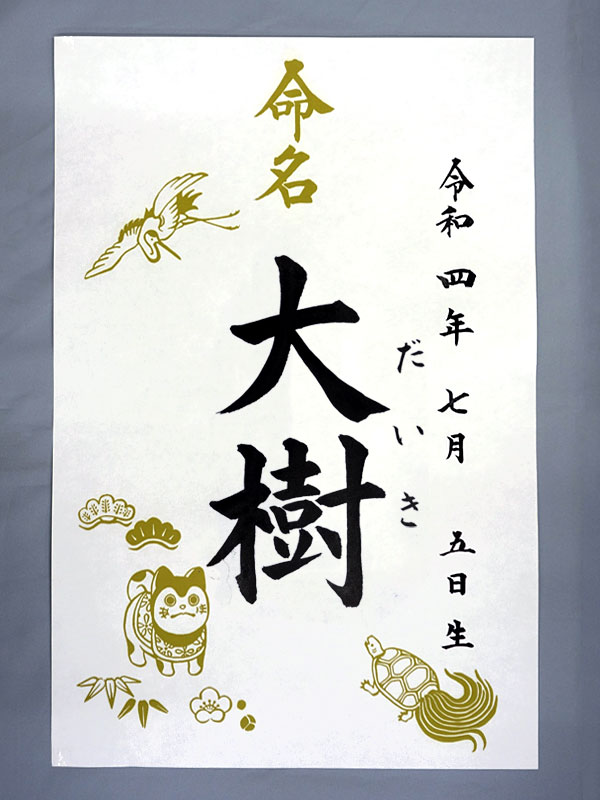 命名
令和四年七月五日生
大樹
だいき